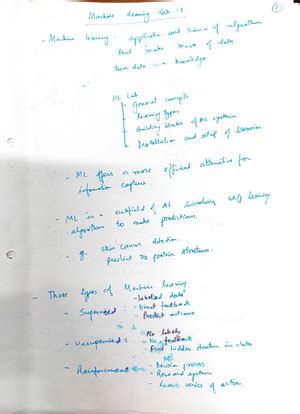 Machine learning Lab - 1
1
- Machine learning - application and science of algorithms
that make sense of data
turn data → knowledge
ML Lab
General concepts
Learning types
Building blocks of ML systems
Installation and setup of libraries
- ML offers a more efficient alternative for
information capture.
- ML is a subfield of AI involving self learning
algorithms to make predictions.
- eg. skin cancer detection.
predict 3D protein structures.
- Three types of Machine learning
- Supervised : - labeled data
- Direct feedback
- Predict outcome
- Unsupervised : - No labels
- No feedback
- Find hidden structure in data
- Reinforcement - Decision process
- Reward system
- Learn series of action